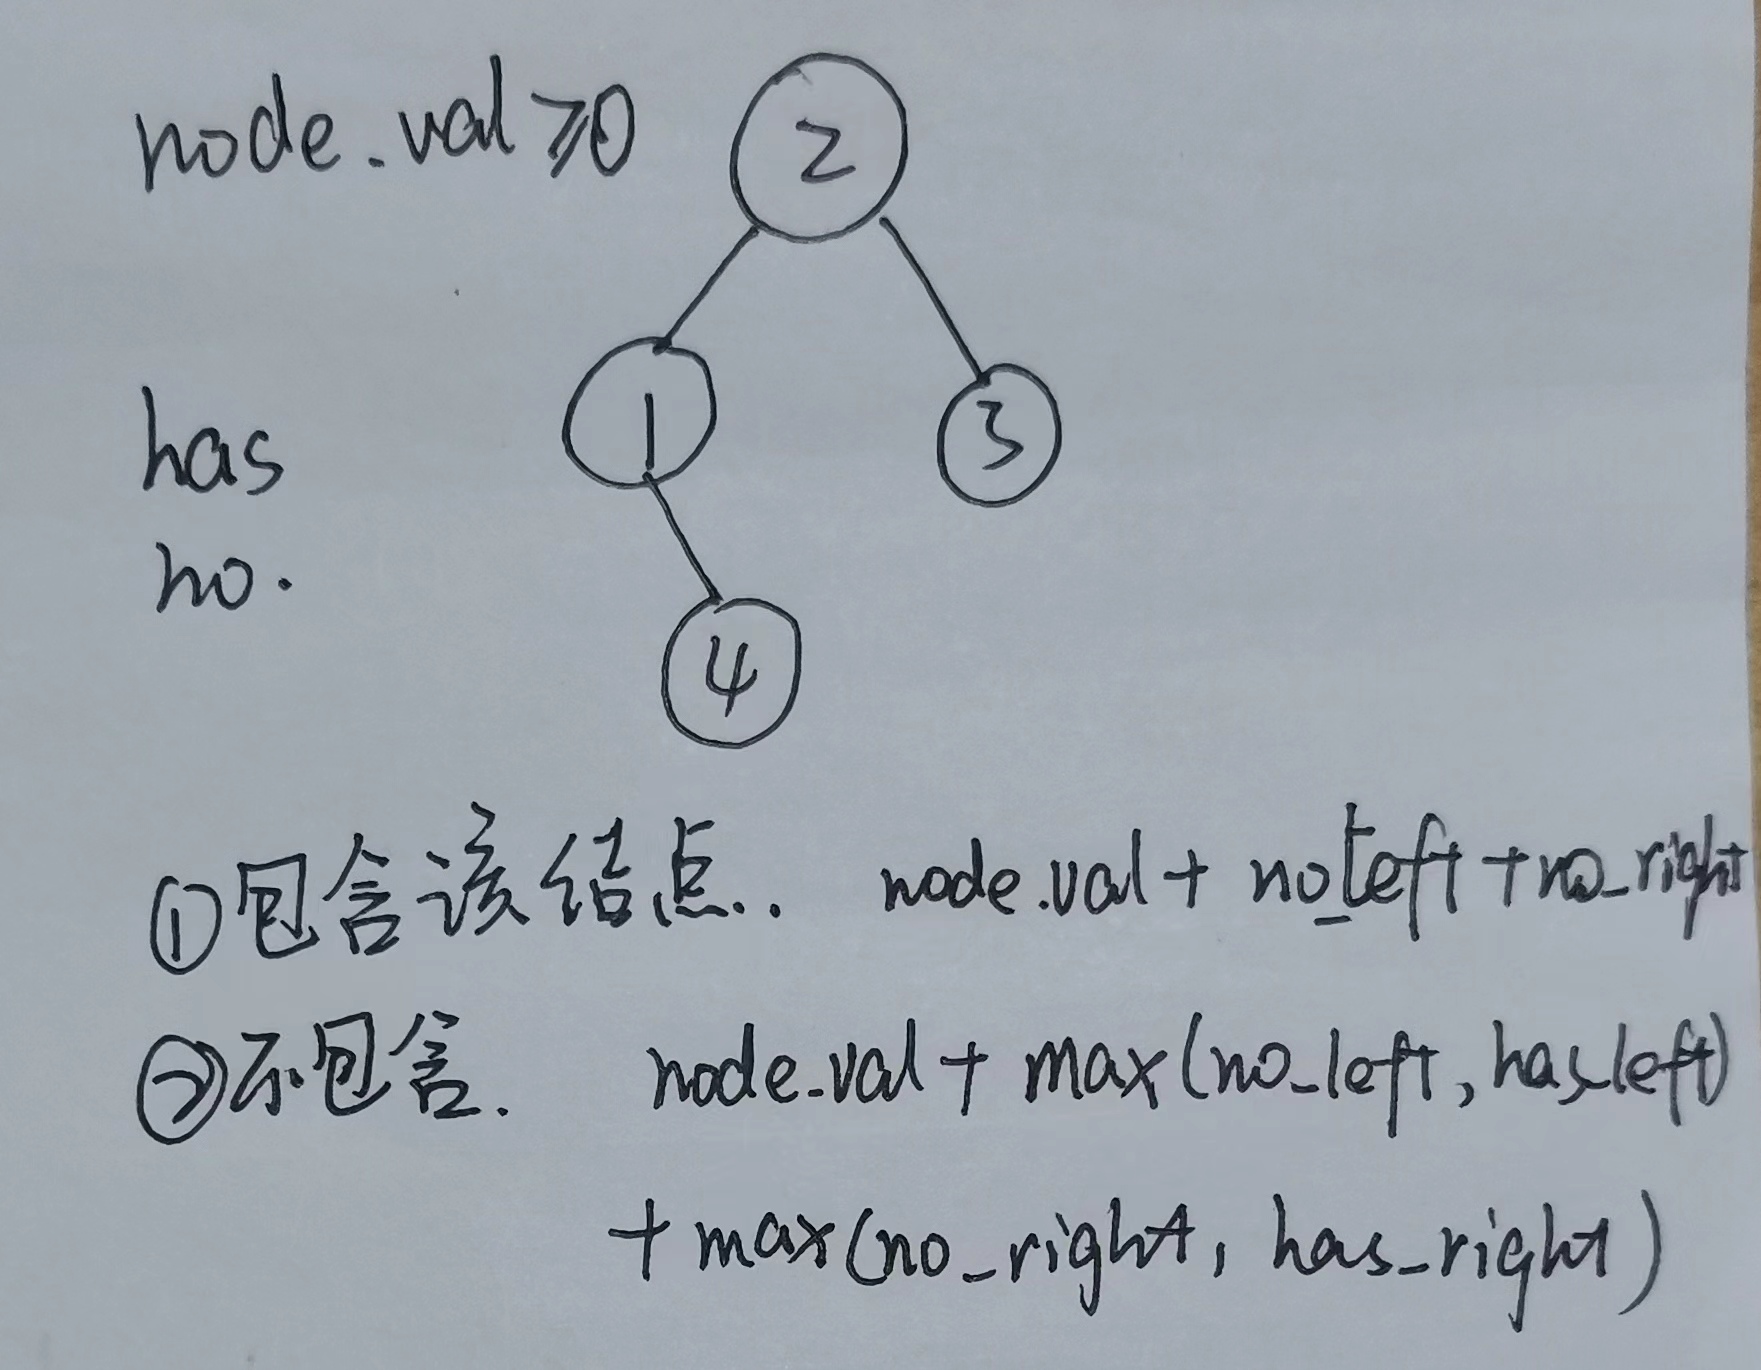 node.val ≥ 0
2
1
3
has
no.
4
①包含该结点.. node.val + no_left + no_right
②不包含. node.val + max(no_left, has_left)
+ max(no_right, has_right)